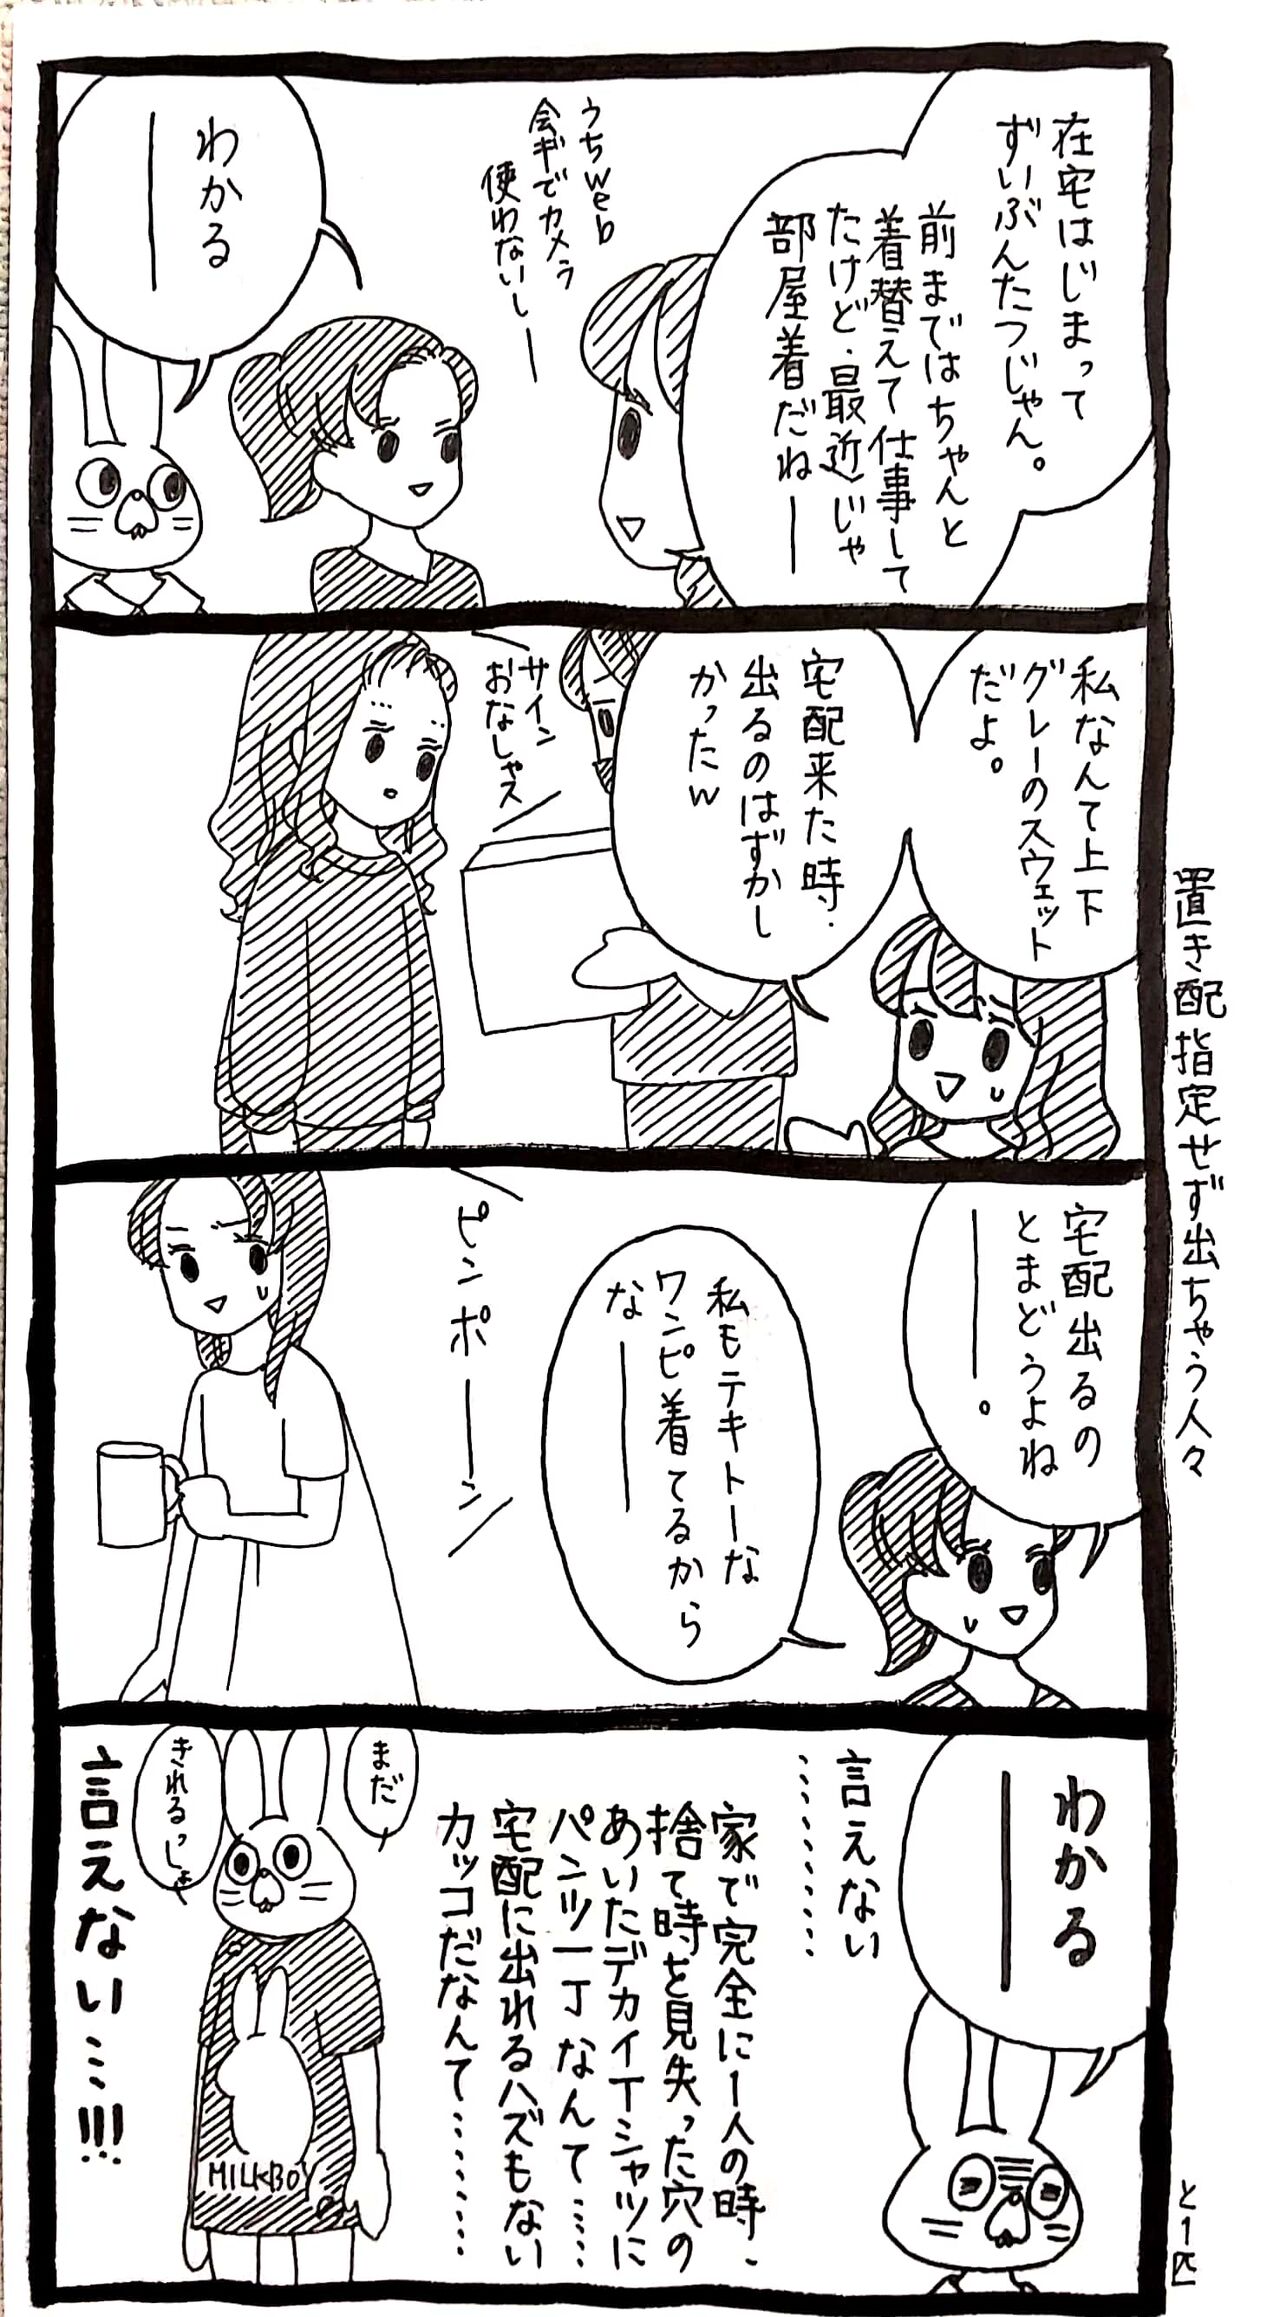 在宅はじまって
ずいぶんたつじゃん。
前まではちゃんと
着替えて仕事して
たけど、最近じゃ
部屋着だねー
うちweb
会ギでカメラ
使わないしー
わかる
ー
私なんて上下
グレーのスウェット
だよ。
宅配来た時、
出るのはずかし
かったw
サイン
おなしゃス
宅配出るの
とまどうよね
ー。
私もテキトーな
ワンピ着てるから
なー
ピンポーン
わかる
ー
言えない
………
家で完全に1人の時、
捨て時を見失った穴の
あいたデカイTシャツに
パンツ一丁なんて……
宅配に出れるハズもない
カッコだなんて………
まだ
きれるっしょ
MILKBOY
言えない…!!!
置き配指定せず出ちゃう人々
と1匹